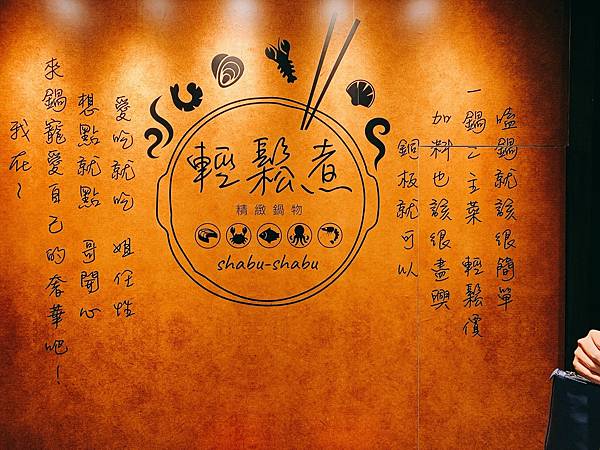 嗑鍋就該很簡單
一鍋二主菜 輕鬆價
加料也該很盡興
銅板就可以
輕鬆煮
精緻鍋物
shabu-shabu
愛吃就吃 姐任性
想點就點 哥開心
來鍋寵愛自己的奢華吧！
我在~